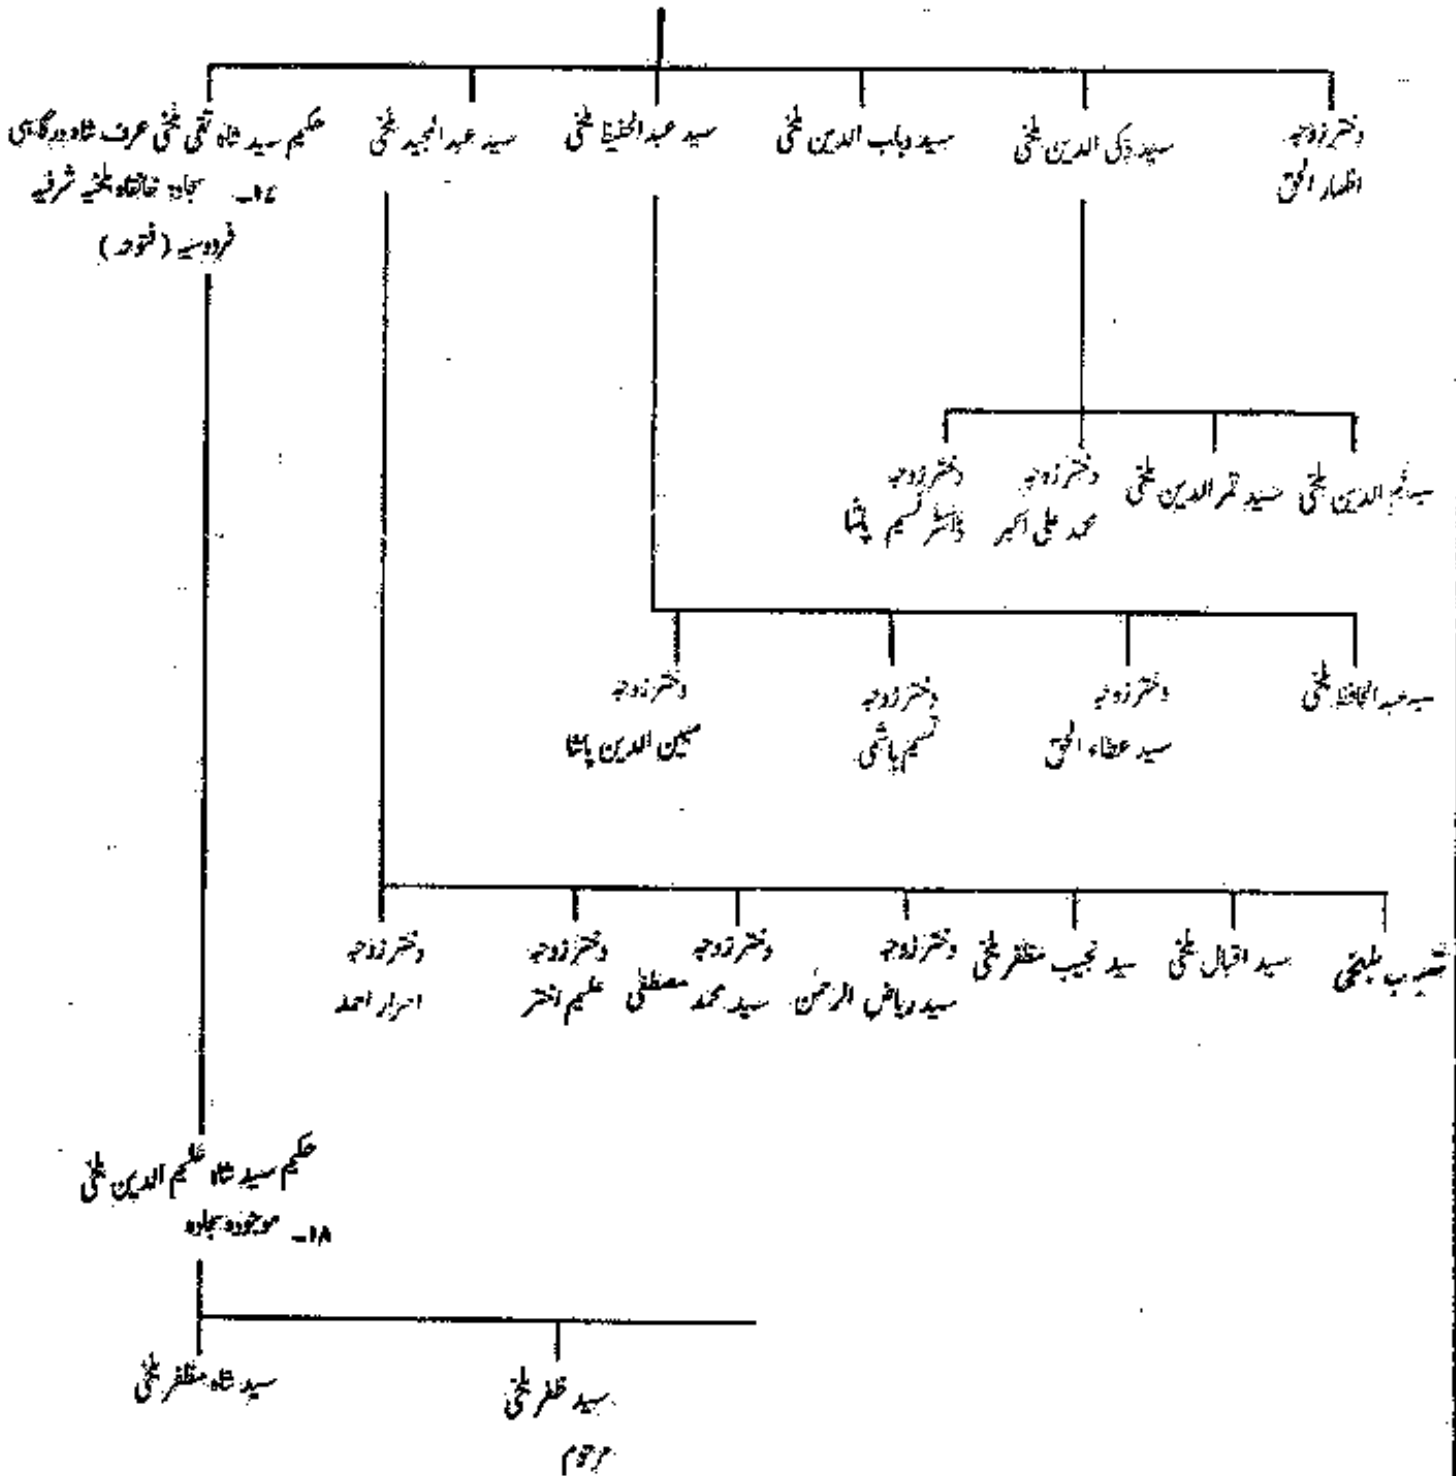 دختر زوجہ
اظہار الحق
سید ذکی الدین بلخی
سید وہاب الدین بلخی
سید عبدالحفیظ بلخی
سید عبدالمجید بلخی
حکیم سید شاہ تقی بلخی عرف شاہ درگاہی
۱۷۔ سجادہ خانقاہ بلخیہ شرفیہ
فردوسیہ (فتوحہ)
سید الدین بلخی
سید قمر الدین بلخی
دختر زوجہ
محمد علی اکبر
دختر زوجہ
ڈاکٹر نسیم پاشا
سید عبدالحافظ بلخی
دختر زوجہ
سید عطاء الحق
دختر زوجہ
نسیم ہاشمی
دختر زوجہ
مبین الدین پاشا
بلخی
سید اقبال بلخی
سید نجیب مظفر بلخی
دختر زوجہ
سید ریاض الرحمٰن
دختر زوجہ
سید محمد مصطفٰی
دختر زوجہ
علیم اختر
دختر زوجہ
اسرار احمد
حکیم سید شاہ علیم الدین بلخی
۱۸۔ موجودہ سجادہ
سید ظفر بلخی
مرحوم
سید شاہ مظفر بلخی